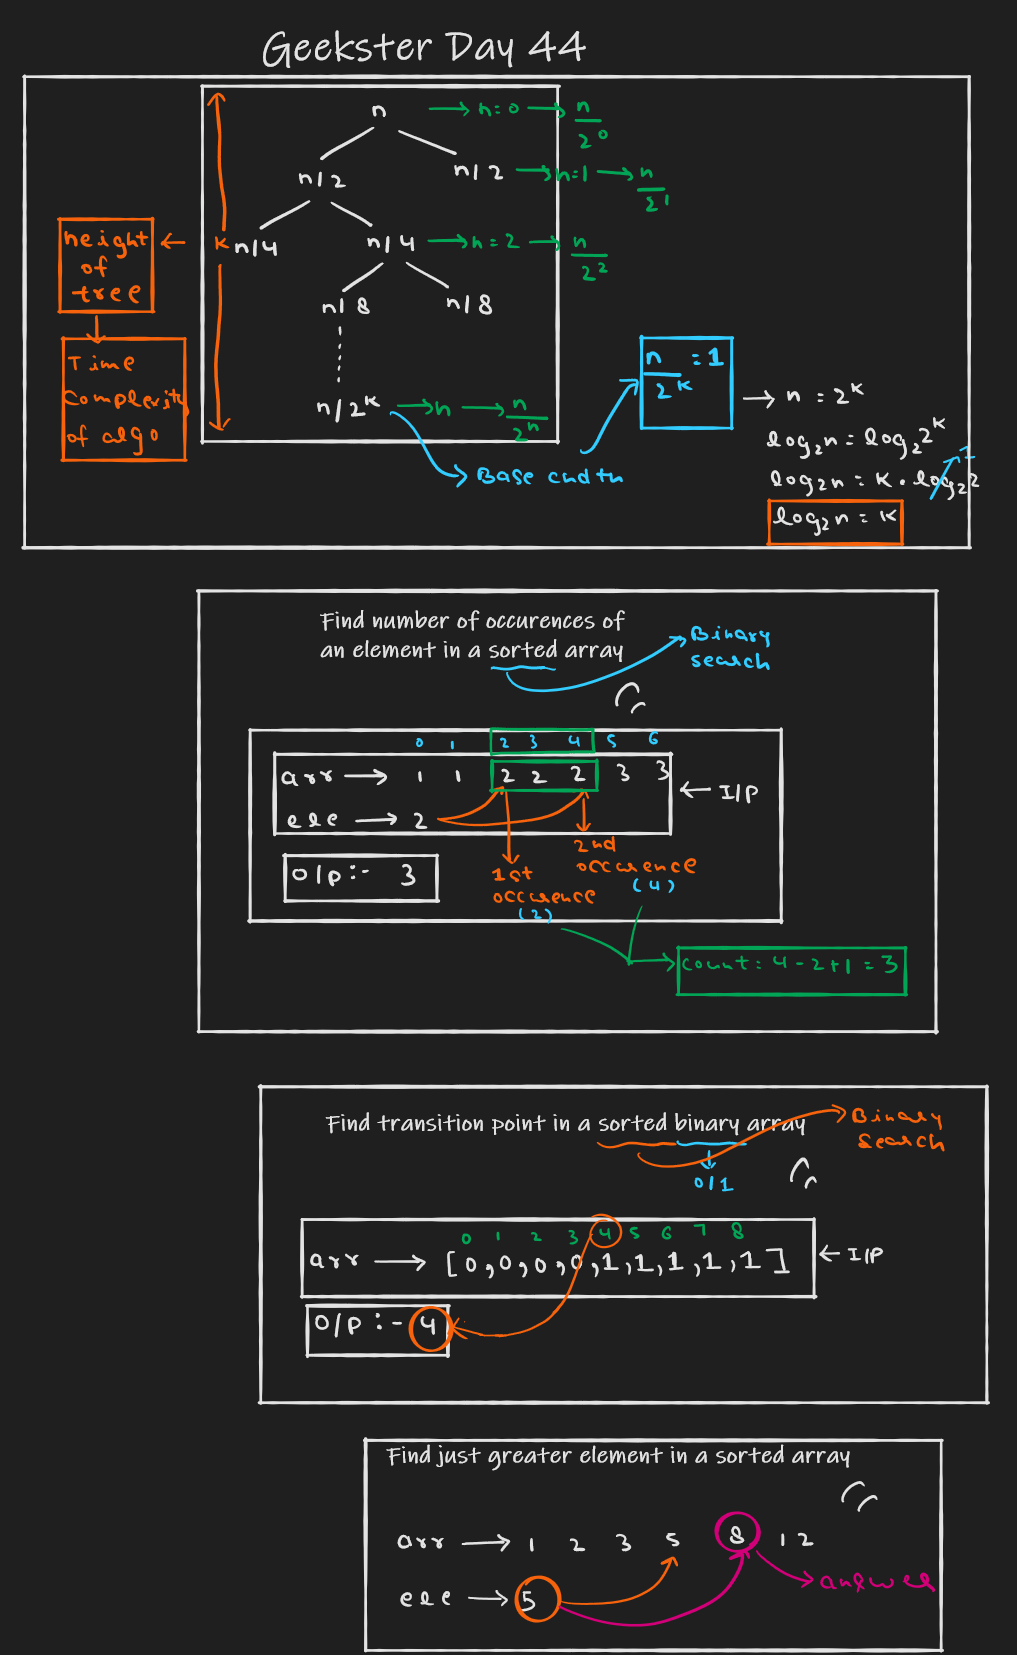 Geekster Day 44
n → h=0 → n/2^0
n/2 n/2 → h=1 → n/2^1
height of tree ← K
n/4 n/4 → h=2 → n/2^2
n/8 n/8
Time
Complexity
of algo
n/2^K → h → n/2^h
Base cndtn
n/2^K = 1 → n = 2^K
log₂n = log₂2^K
log₂n = K · log₂2 1
log₂n = K
Find number of occurences of
an element in a sorted array
Binary
search
0 1 2 3 4 5 6
arr → 1 1 2 2 2 3 3
← I/P
ele → 2
O/p :- 3
1st
occurence
(2)
2nd
occurence
(4)
count = 4 - 2 + 1 = 3
Find transition point in a sorted binary array
Binary
Search
0/1
0 1 2 3 4 5 6 7 8
arr → [0,0,0,0,1,1,1,1,1] ← I/P
O/P :- 4
Find just greater element in a sorted array
arr → 1 2 3 5 8 12
ele → 5
answer